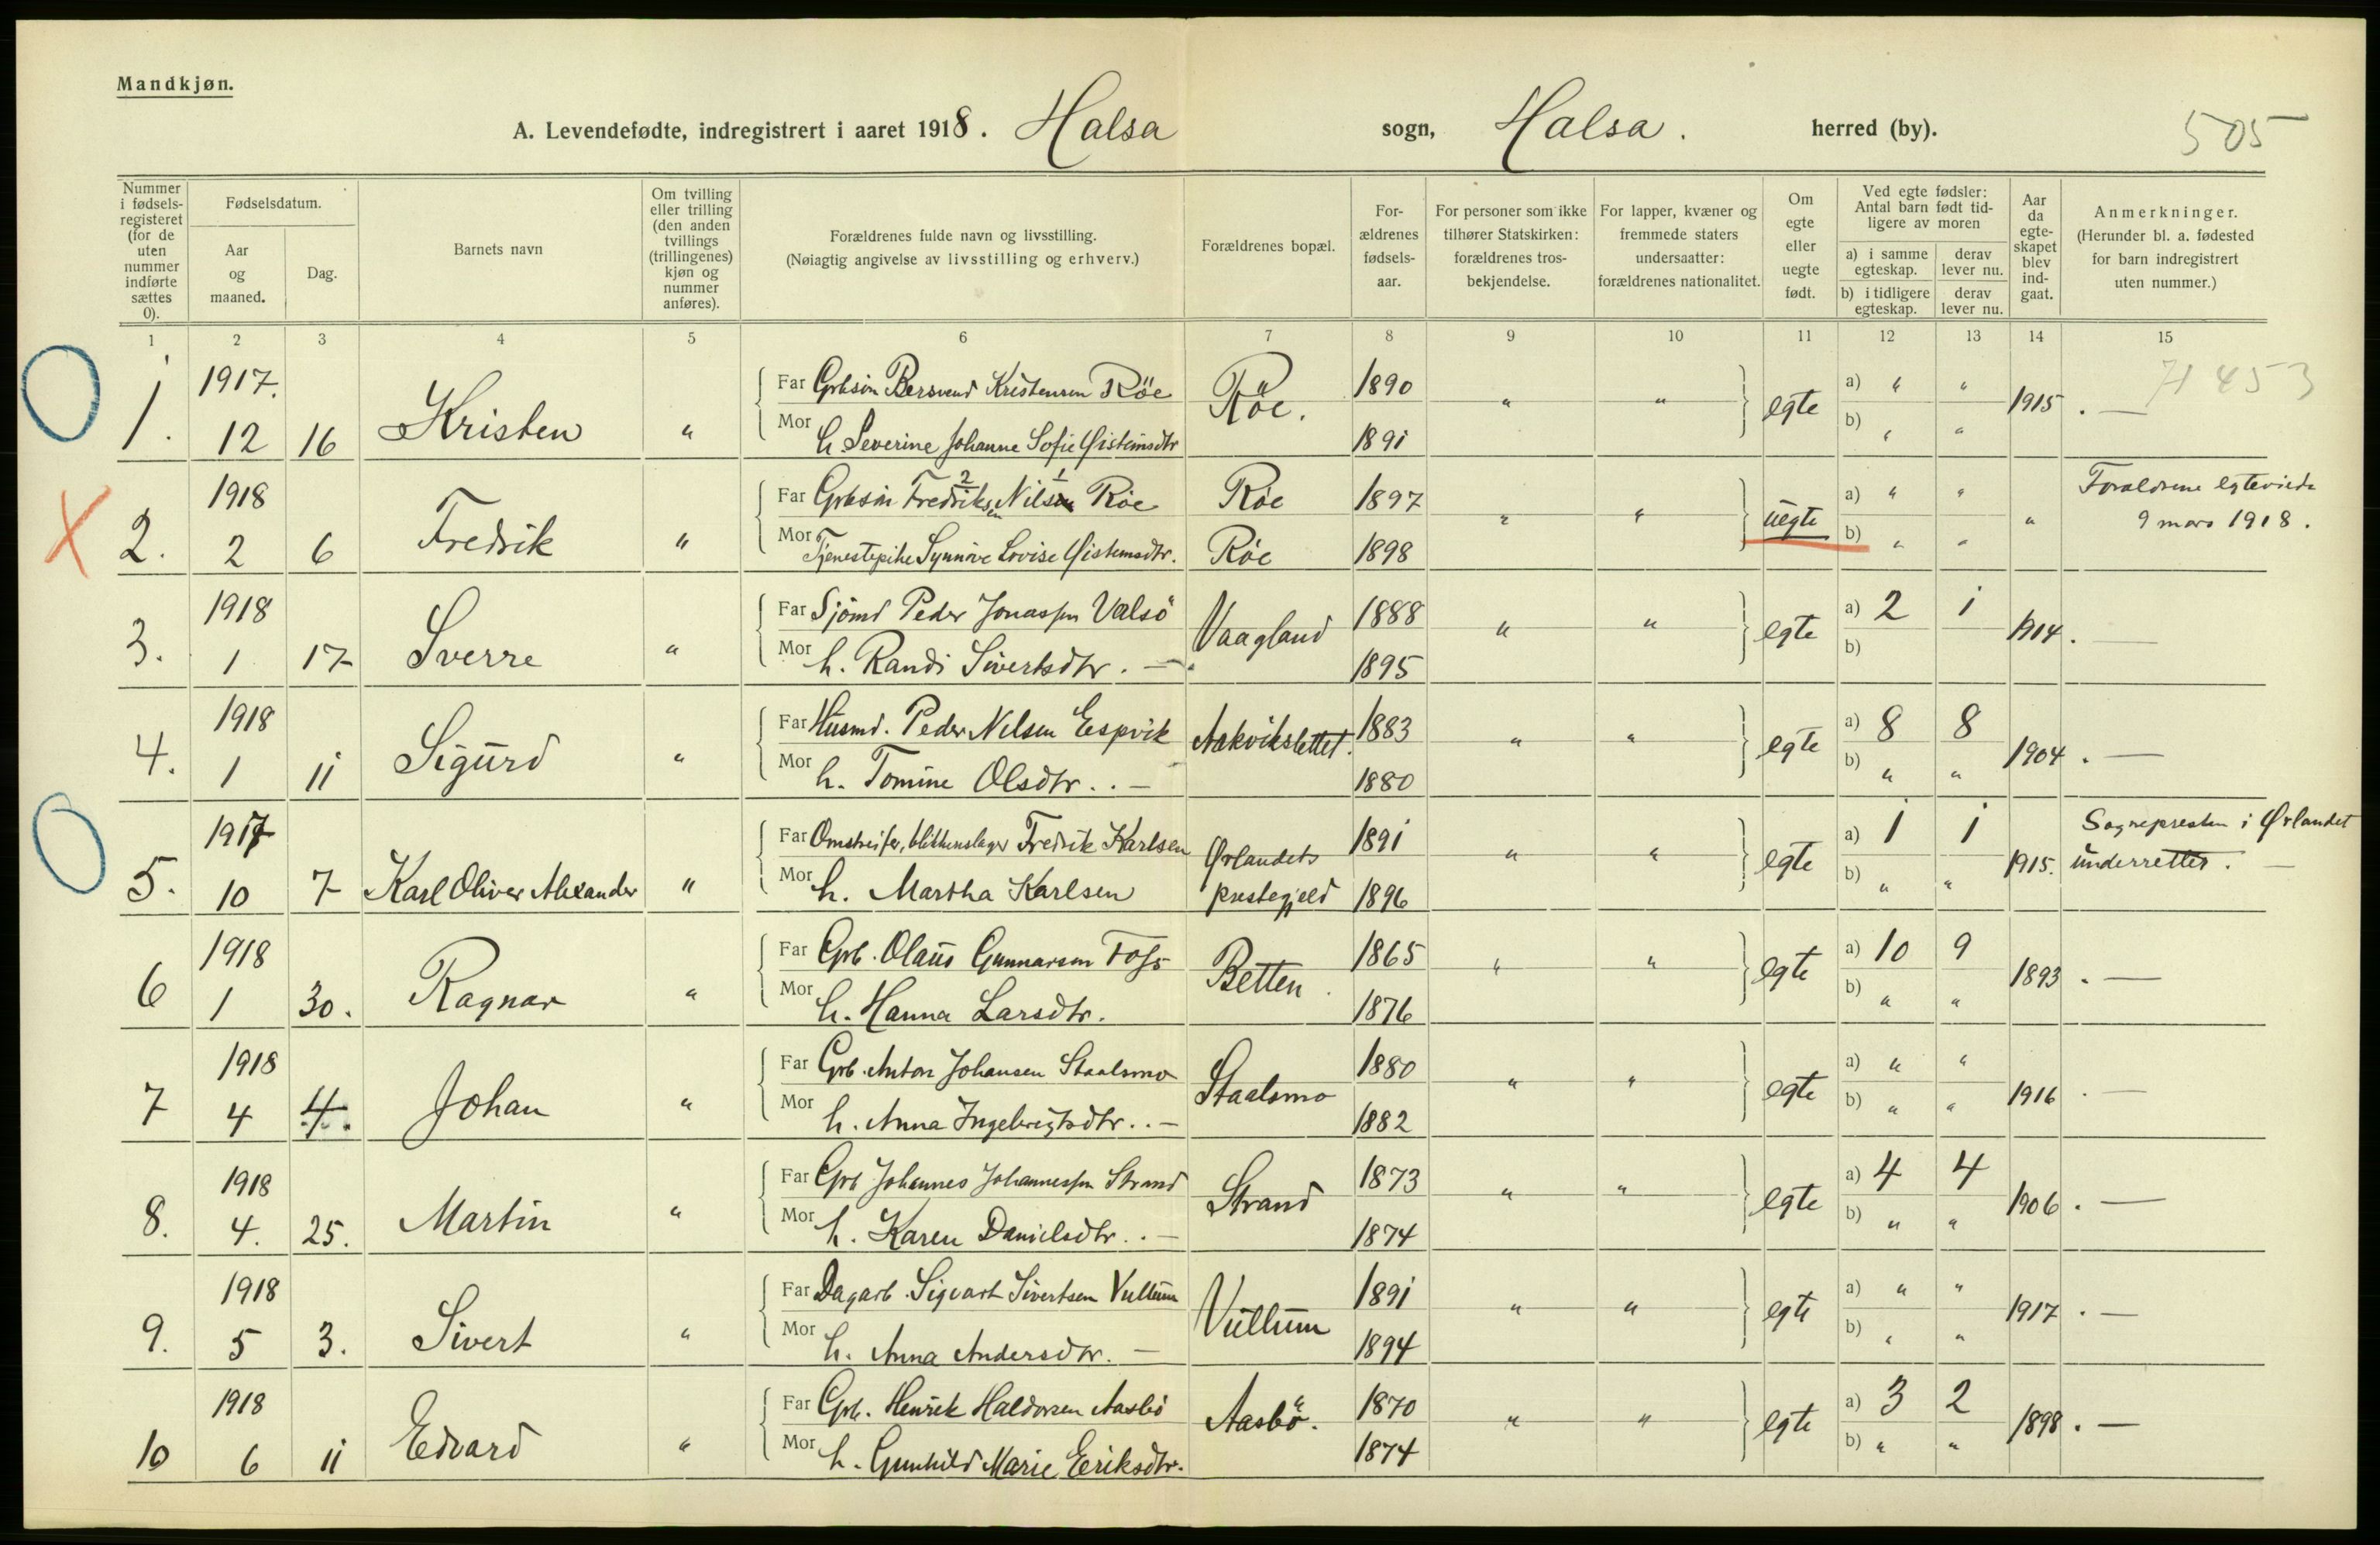 Mandkjøn.
A. Levendefødte, indregistrert i aaret 1918. Halsa sogn, Halsa. herred (by). 505
Nummer i fødsels-registeret (for de uten nummer indførte sættes 0).
Fødselsdatum.
Aar og maaned.
Dag.
Barnets navn
Om tvilling eller trilling (den anden tvillings (trillingenes) kjøn og nummer anføres).
Forældrenes fulde navn og livsstilling.
(Nøiagtig angivelse av livsstilling og erhverv.)
Forældrenes bopæl.
For-ældrenes fødsels-aar.
For personer som ikke tilhører Statskirken: forældrenes tros-bekjendelse.
For lapper, kvæner og fremmede staters undersaatter: forældrenes nationalitet.
Om egte eller uegte født.
Ved egte fødsler: Antal barn født tid-ligere av moren
a) i samme egteskap.
derav lever nu.
b) i tidligere egteskap.
derav lever nu.
Aar da egte-skapet blev ind-gaat.
Anmerkninger.
(Herunder bl. a. fødested for barn indregistrert uten nummer.)
1 2 3 4 5 6 7 8 9 10 11 12 13 14 15
1. 1917. 12 16 Kristen " Far Grbsøn Bersvend Kristensen Röe Röe. 1890 " " egte a) " " 1915. — 71453
Mor h Severine Johanne Sofie Øisteinsdtr 1891 b) " "
2. 1918 2 6 Fredrik " Far Grbsøn Fredriksen 2 Nilsen 1 Röe Röe 1897 " " uegte a) " " " Forældrene egteviede
Mor Tjenestepike Synnöve Lovise Øisteinsdtr. Röe 1898 b) " " 9 mars 1918.
3. 1918 1 17 Sverre " Far Sjömd Peder Jonassen Valsö Vaagland 1888 " " egte a) 2 1 1914. —
Mor h. Randi Sivertsdtr. — 1895 b)
4. 1918 1 11 Sigurd " Far Husmd. Peder Nilsen Espvik Aakvikslettet. 1883 " " egte a) 8 8 1904. —
Mor h. Tomine Olsdtr. . — 1880 b) " "
5. 1917 10 7 Karl Oliver Alexander " Far Omstreifer, blikkenslager Fredrik Karlsen Ørlandets 1891 " " egte a) 1 1 1915. Sognepresten i Ørlandet
Mor h. Martha Karlsen prestegjeld 1896 b) " " underrettes. —
6 1918 1 30. Ragnar " Far Grb. Olaus Gunnarsen Foss Betten 1865 " " egte a) 10 9 1893. —
Mor h. Hanna Larsdtr. 1876 b) " "
7 1918 4 4. Johan " Far Grb. Anton Johansen Staalsmo Staalsmo 1880 " " egte a) " " 1916. —
Mor h. Anna Ingebrigtsdtr. . — 1882 b) " "
8. 1918 4. 25. Martin " Far Grb Johannes Johannessen Strand Strand 1873 " " egte a) 4 4 1906. —
Mor h. Karen Danielsdtr. . — 1874 b) " "
9. 1918 5 3. Sivert " Far Dagarb. Sigvart Sivertsen Vullum Vullum 1891 " " egte a) " " 1917. —
Mor h. Anna Andersdtr. — 1894 b) " "
10 1918 6 11 Edvard " Far Grb. Henrik Haldorsen Aasbö Aasbö. 1870 " " egte a) 3 2 1898. —
Mor h. Gunhild Marie Eriksdtr. 1874 b) " "